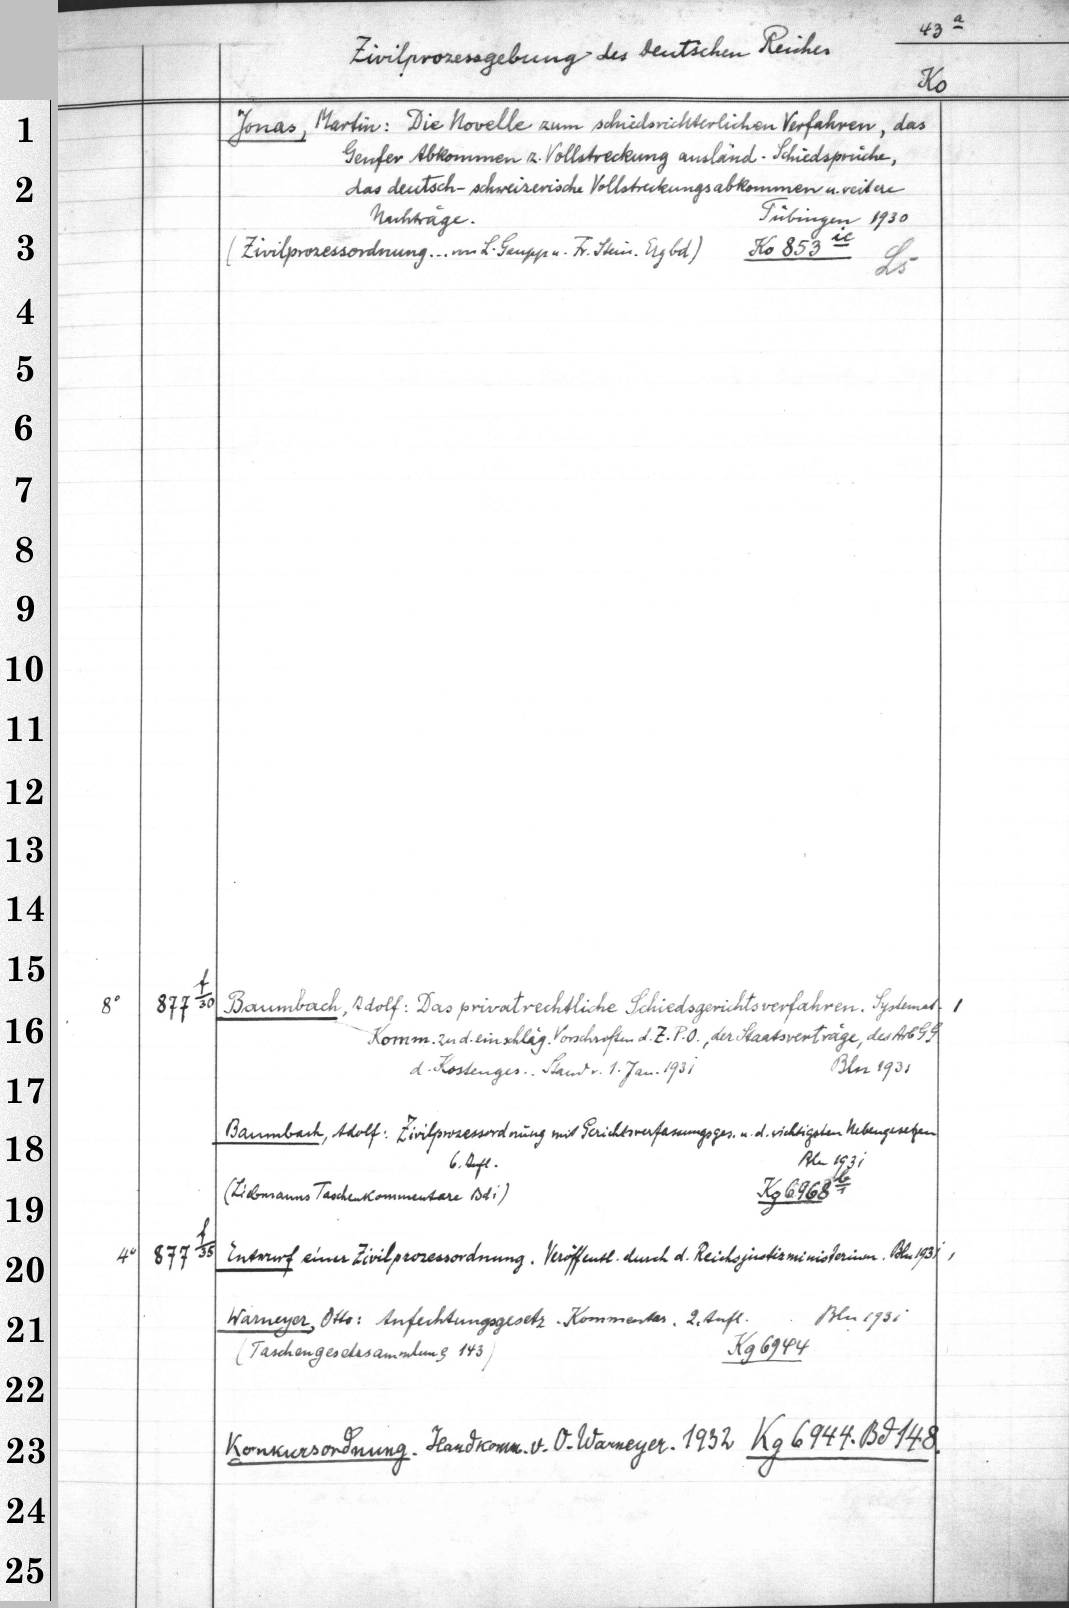 43 a
Zivilprozessgebung des deutschen Reiches
Ko
1
Jonas, Martin: Die Novelle zum schiedsrichterlichen Verfahren, das
Genfer Abkommen z. Vollstreckung ausländ. Schiedsprüche,
2
das deutsch-schweizerische Vollstreckungsabkommen u. weitere
Nachträge. Tübingen 1930
3
(Zivilprozessordnung... von L. Gaupp u. Fr. Stein. Erg bd) Ko 853 ic
4
5
6
7
8
9
10
11
12
13
14
15
8° 877 f/30 Baumbach, Adolf: Das privatrechtliche Schiedsgerichtsverfahren. Systemat. 1
16
Komm. zu d. einschläg. Vorschriften d. Z.P.O., der Staatsverträge, des ArbGG
d. Kostenges.. Stand v. 1. Jan. 1931 Bln 1931
17
Baumbach, Adolf: Zivilprozessordnung mit Gerichtsverfassungsges. u. d. wichtigsten Nebengesetzen
18
6. Aufl. Bln 1931
(Liebmanns Taschenkommentare Bd 1) Kg 6968
19
4° 877 f/35 Entwurf einer Zivilprozessordnung. Veröffentl. durch d. Reichsjustizministerium. Bln 1931 1
20
Warneyer, Otto: Anfechtungsgesetz. Kommentar. 2. Aufl. Bln 1931
21
(Taschengesetzsammlung 143) Kg 6944
22
Konkursordnung. Handkomm. v. O. Warneyer. 1932 Kg 6944. Bd 148.
23
24
25